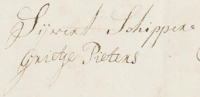 Sijvert Schipper
Grietge Pieters